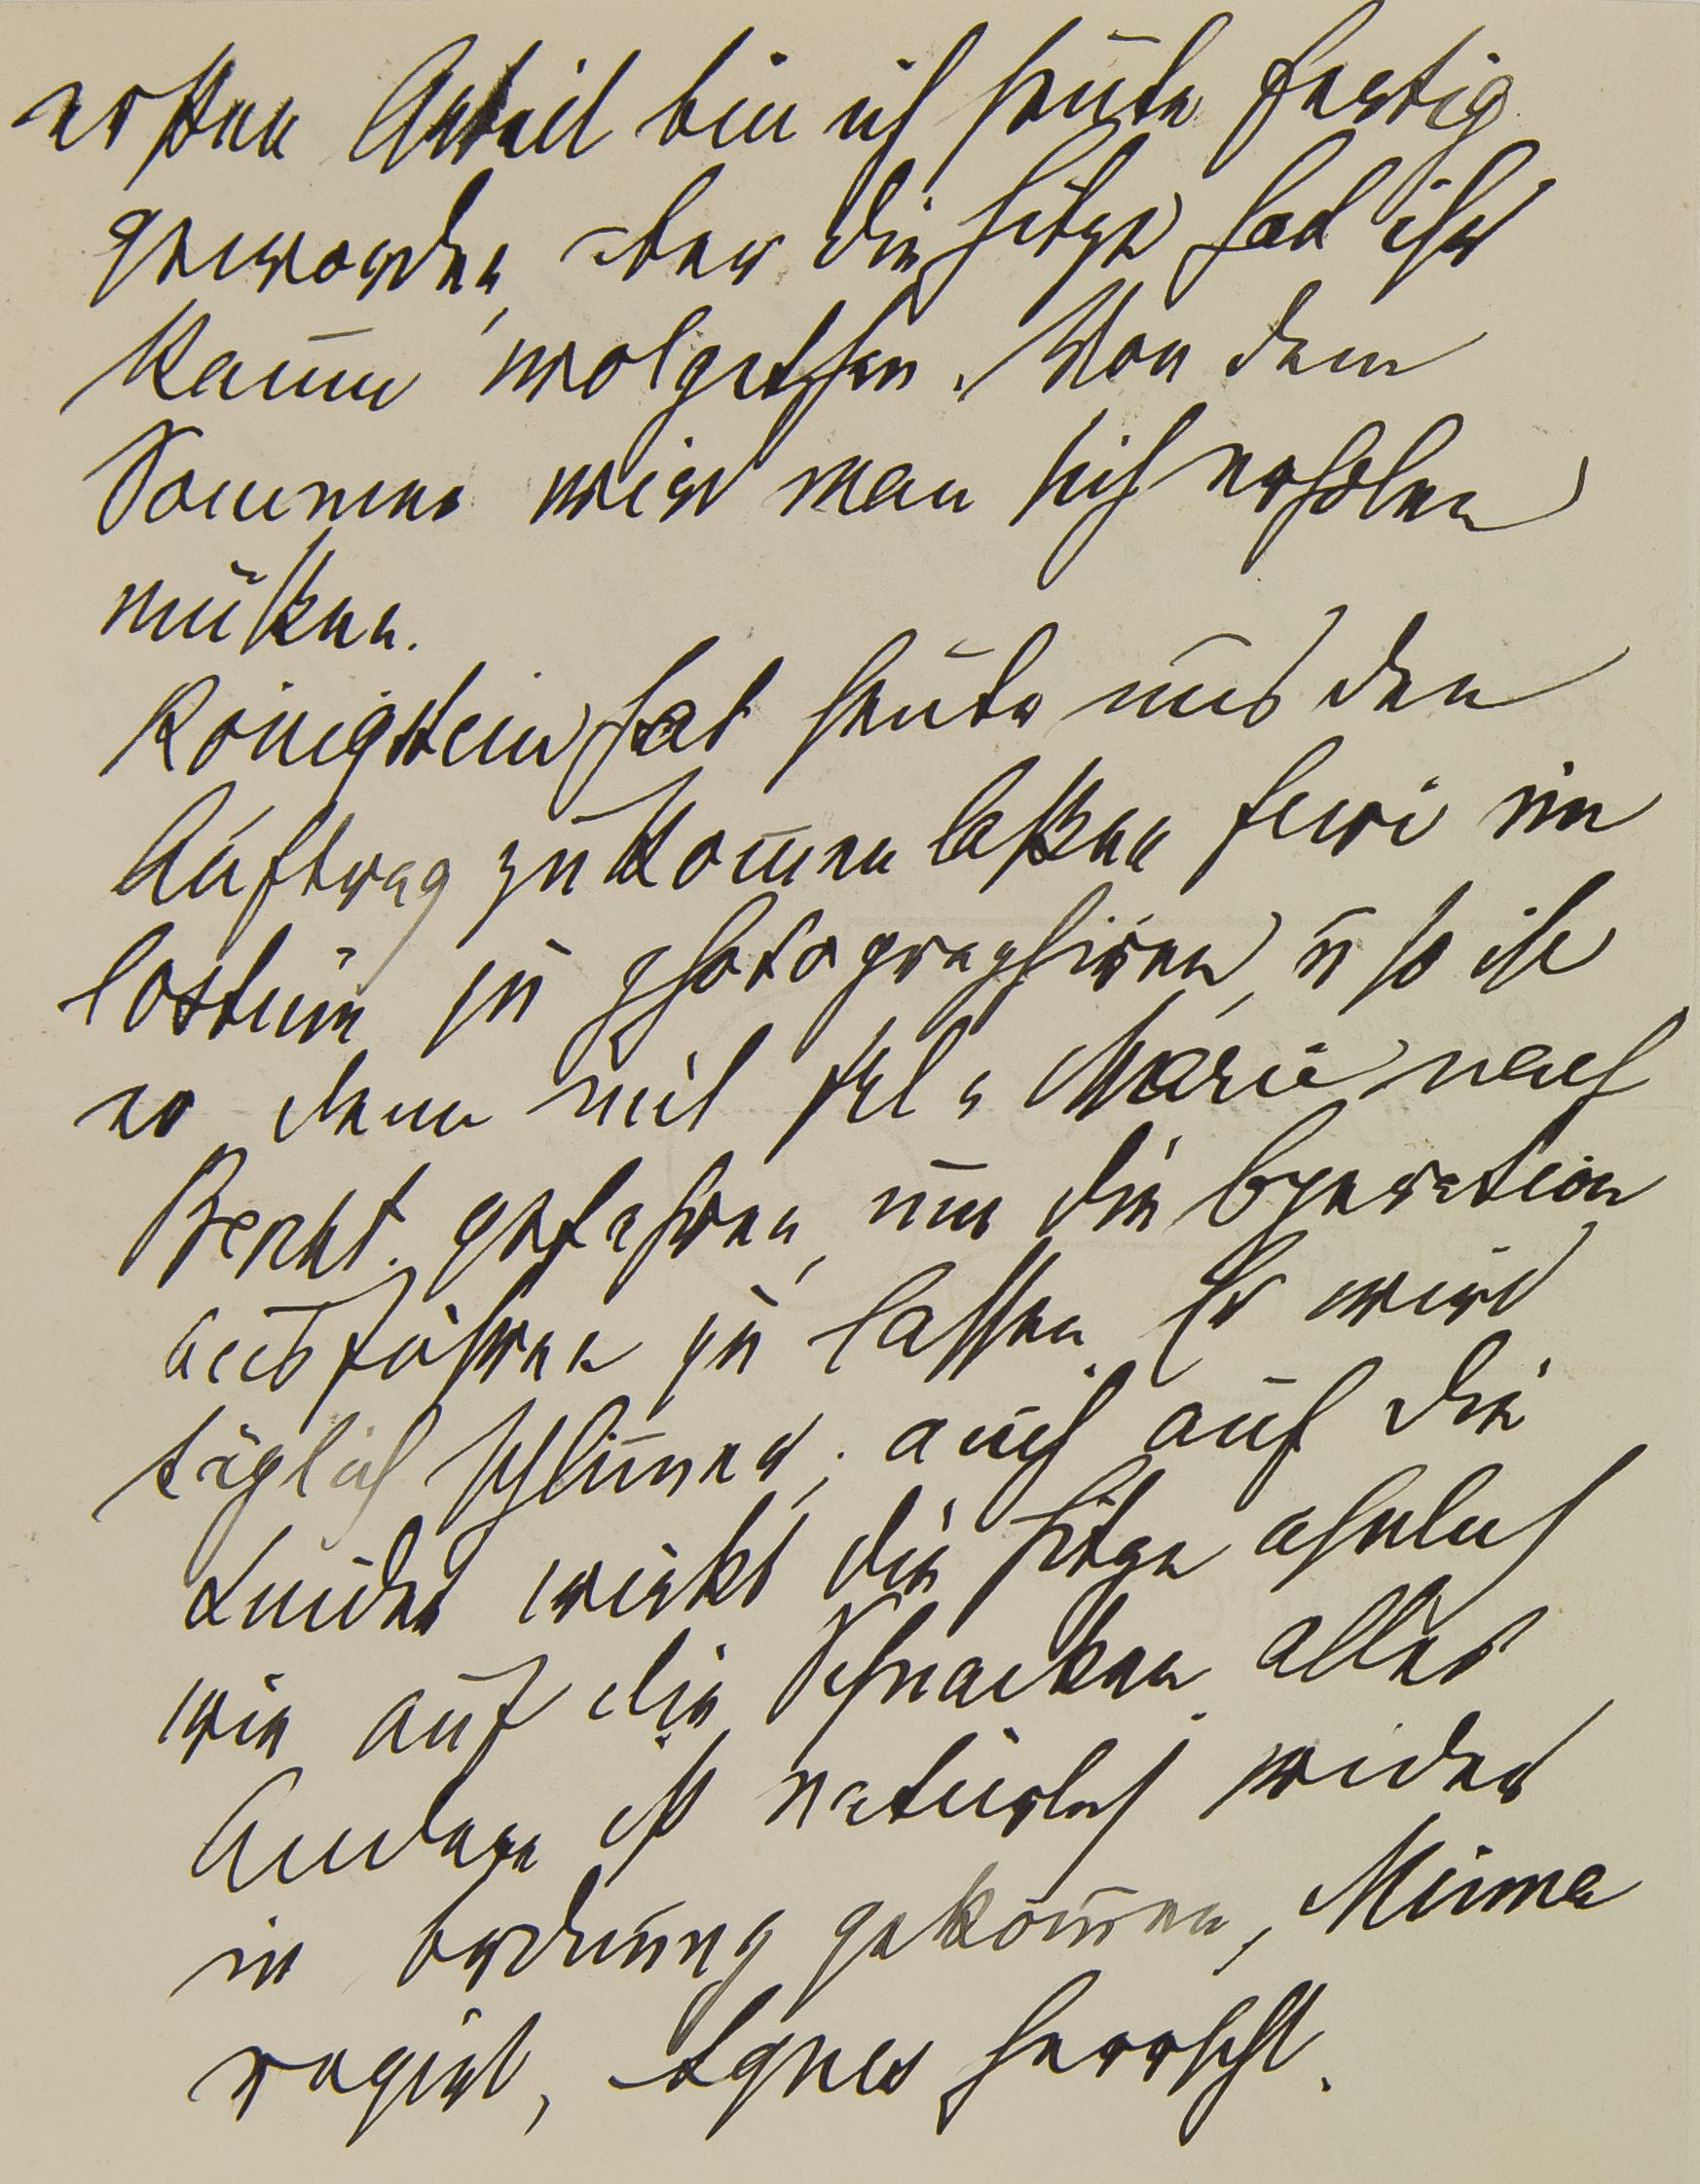 ersten Anteil bin ich heute fertig
geworden, aber die Hitze hat ihr
kaum wolgethan. Von dem
Sommer wird man sich erholen
müßen.
Königstein hat heute uns den
Auftrag zukom̄en laßen  im
Costüm zu photographiren, u so ist
er denn mit Frl. Marie nach
Bercht. gefahren, um die Operation
ausführen zu lassen. Er wird
täglich schlim̄er; auch auf die
Kinder wirkt die Hitze ähnlich
wie auf die Schnacken. Alles
Andere ist natürlich wieder
in Ordnung gekom̄en, Minna
regirt, Agnes herrscht.